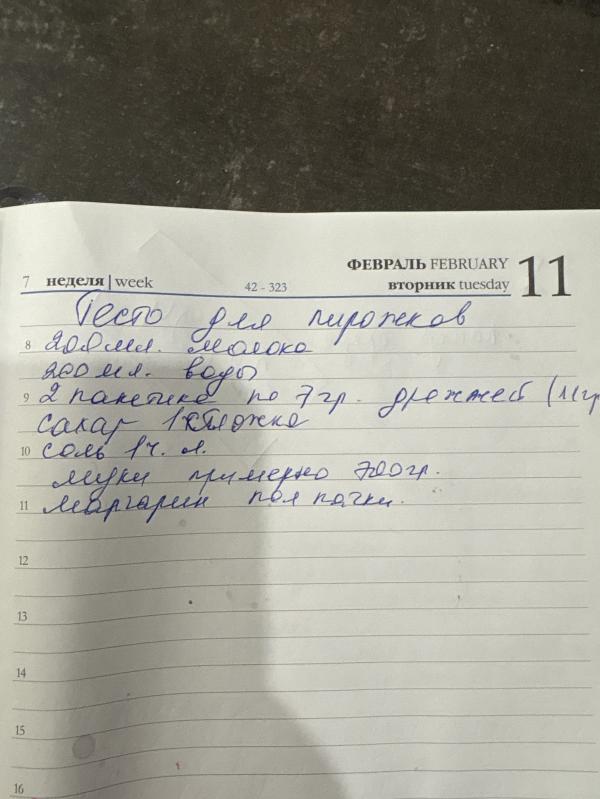 ФЕВРАЛЬ FEBRUARY 11
7 неделя | week 42 - 323 вторник tuesday
Тесто для пирожков
8 200 мл. молоко
200 мл. воды
9 2 пакетика по 7 гр. дрожжей (11гр
сахар 1 ст ложка
10 соль 1 ч. л.
муки примерно 700 гр.
11 маргарин пол пачки.
12
13
14
15
16